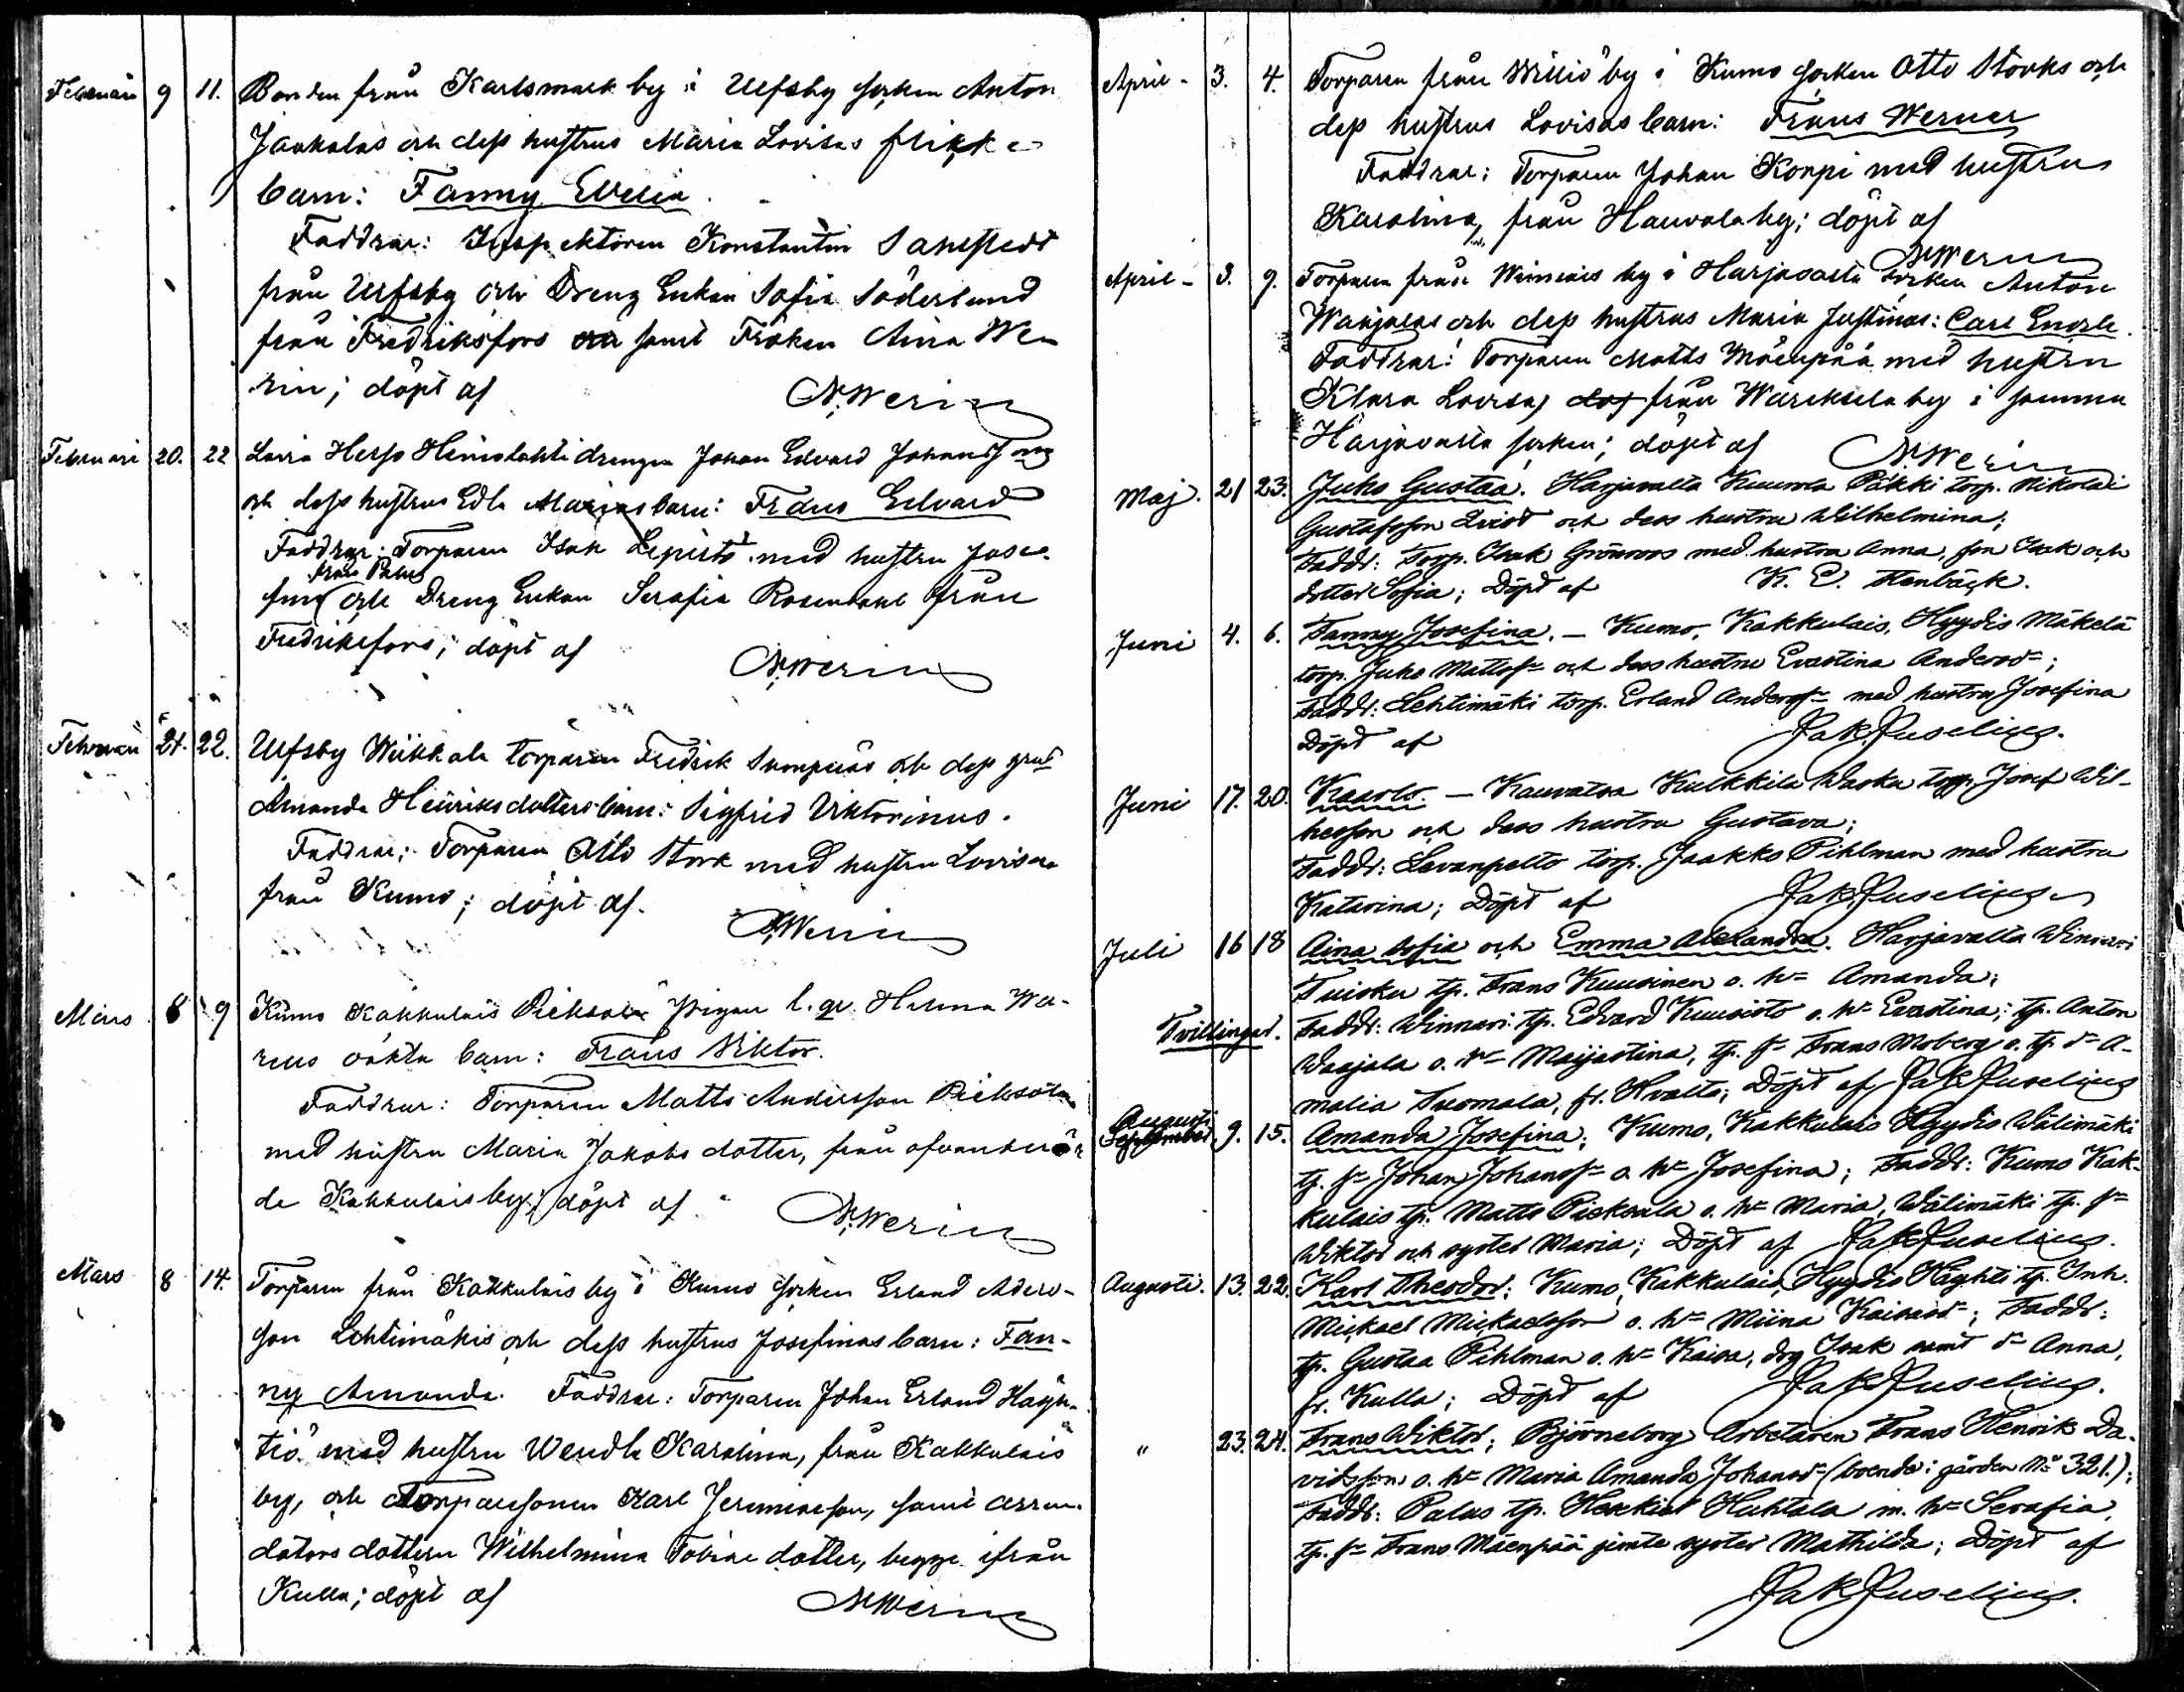 Februari 9 11. Bonden från Karlsmark by i Ulfsby socken Anton
Jaakolas och dess hustrus Maria Lovisas flikke
barn: Fanny Evelia.
Faddrar: Inspektoren Konstantin
från Ulfsby och Dreng Enkan Sofia Söderlund
från Fredriksfors samt Fröken Aina We-
rin; döpt af N. Werin
Februari 20. 22 Hemilahti drengen Johan Edvard Johansson
och dess hustrus Edla Marias barn: Frans Edvard
Faddrar: Torparen Isak Lepistö med hustru Jose-
från Palus
fina och Dreng Enkan Serafia Rosendahl från
Fredriksfors; döpt af N. Werin
Februari 21. 22. Ulfsby Wiikkala torparen Fredrik Suompääs och dess
Amanda Henriksdotters barn: Sigfrid Viktorinus.
Faddrar: Torparen Otto Stork med hustru Lovisa
från Kumo; döpt af N. Werin
Mars 8 9 Kumo Kakkulais Pieksala pigan l. qv. Helena Wa-
rens oäkta barn: Frans Viktor.
Faddrar: Torparen Matts Andersson Pieksala
med hustru Maria Jakobsdotter, från ofvanberör-
de Kakkulais by; döpt af N. Werin
Mars 8 14. Torparen från Kakkulais by i Kumo socken Erland Anders-
son Lehtimäkis och dess hustrus Josefinas barn: Fan-
ny Amanda. Faddrar: Torparen Johan Erland Häyh-
tiö med hustru Wendla Karolina, från Kakkulais
by, och Torparesonen Karl Jeremiasson, samt arren-
datorsdottern Wilhelmina Tobiasdotter, begge ifrån
Kulla; döpt af N. Werin
April - 3. 4. Torparen från by i Kumo socken Otto Storks och
dess hustrus Lovisas barn: Frans Werner
Faddrar: Torparen Johan Korpi med hustru
Karolina, från Hauvola by; döpt af
N. Werin
April - 3. 9. Torparen från Winnais by i Harjavalta socken Anton
Waajalas och dess hustrus Maria Justinas: Carl Enok.
Faddrar: Torparen Matts Mäenpää med hustru
Klara Lovisa, från by i samma
Harjavalta socken; döpt af N. Werin
Maj. 21 23. Juho Gustaa. Harjavalta Kuurola Pákki torp. Nikolai
Gustafsson Qvist och dess hustru Wilhelmina;
Faddr: Torp. Isak Grönroos med hustru Anna, son Isak och
dotter Sofia; Döpt af K. E. Stenbäck.
Juni 4. 6. Fanny Josefina. - Kumo, Kakkulais, Hyydis Mäkelä
torp. Juho Mattss= och dess hustru Evastina Andersd=;
Faddr: Lehtimäki torp. Erland Anderss= med hustru Josefina
Döpt af Jak. Juselius.
Juni 17. 20. Kaarlo. - Kauvatsa Kulkkila Waska torp. Josef Wil-
helsson och dess hustru Gustava;
Faddr: Levanpelto torp. Jaakko Pihlman med hustru
Katarina; Döpt af Jak. Juselius
Juli 16 18 Aina Sofia och Emma Alexandra. Harjavalta Winnari
Tuisku tp. Frans Kuusinen o. h= Amanda;
Tvillingar. Faddr: Winnari tp. Edvard Kuusisto o. h= Evastina; tp. Anton
Waajala o. h= Maijastina, tp. s= Frans Moberg o. tp. d= A-
malia Tuomala, fr. Hvalta; Döpt af Jak Juselius
Augusti
September 9. 15. Amanda Josefina; Kumo, Kakkulais Hyydis Wälimäki
tp. s= Johan Johanss= o. h= Josefina; Faddr: Kumo Kak-
kulais tp. Matts Pieksala o. h= Maria, Wälimäki tp. s=
Wiktor och syster Maria; Döpt af Jak Juselius.
Augusti. 13. 22. Karl Theodor; Kumo, Kakkulais, Hyydis Häyhti tp. Inh.
Mickael Mickaelsson o. h= Miina Kaisasd=; Faddr:
tp. Gustaa Pihlman o. h= Kaisa, drg Isak samt d= Anna,
fr. Kulla; Döpt af Jak Juselius.
" 23. 24. Frans Wiktor; Björneborg Arbetaren Frans Henrik Da-
vidsson o. h= Maria Amanda Johansd= (boende i gården No 321.);
Faddr: Palus tp. Heskiel Huhtala m. h= Serafia,
tp. s= Frans Mäenpää jemte syster Mathilda; Döpt af
Jak Juselius.